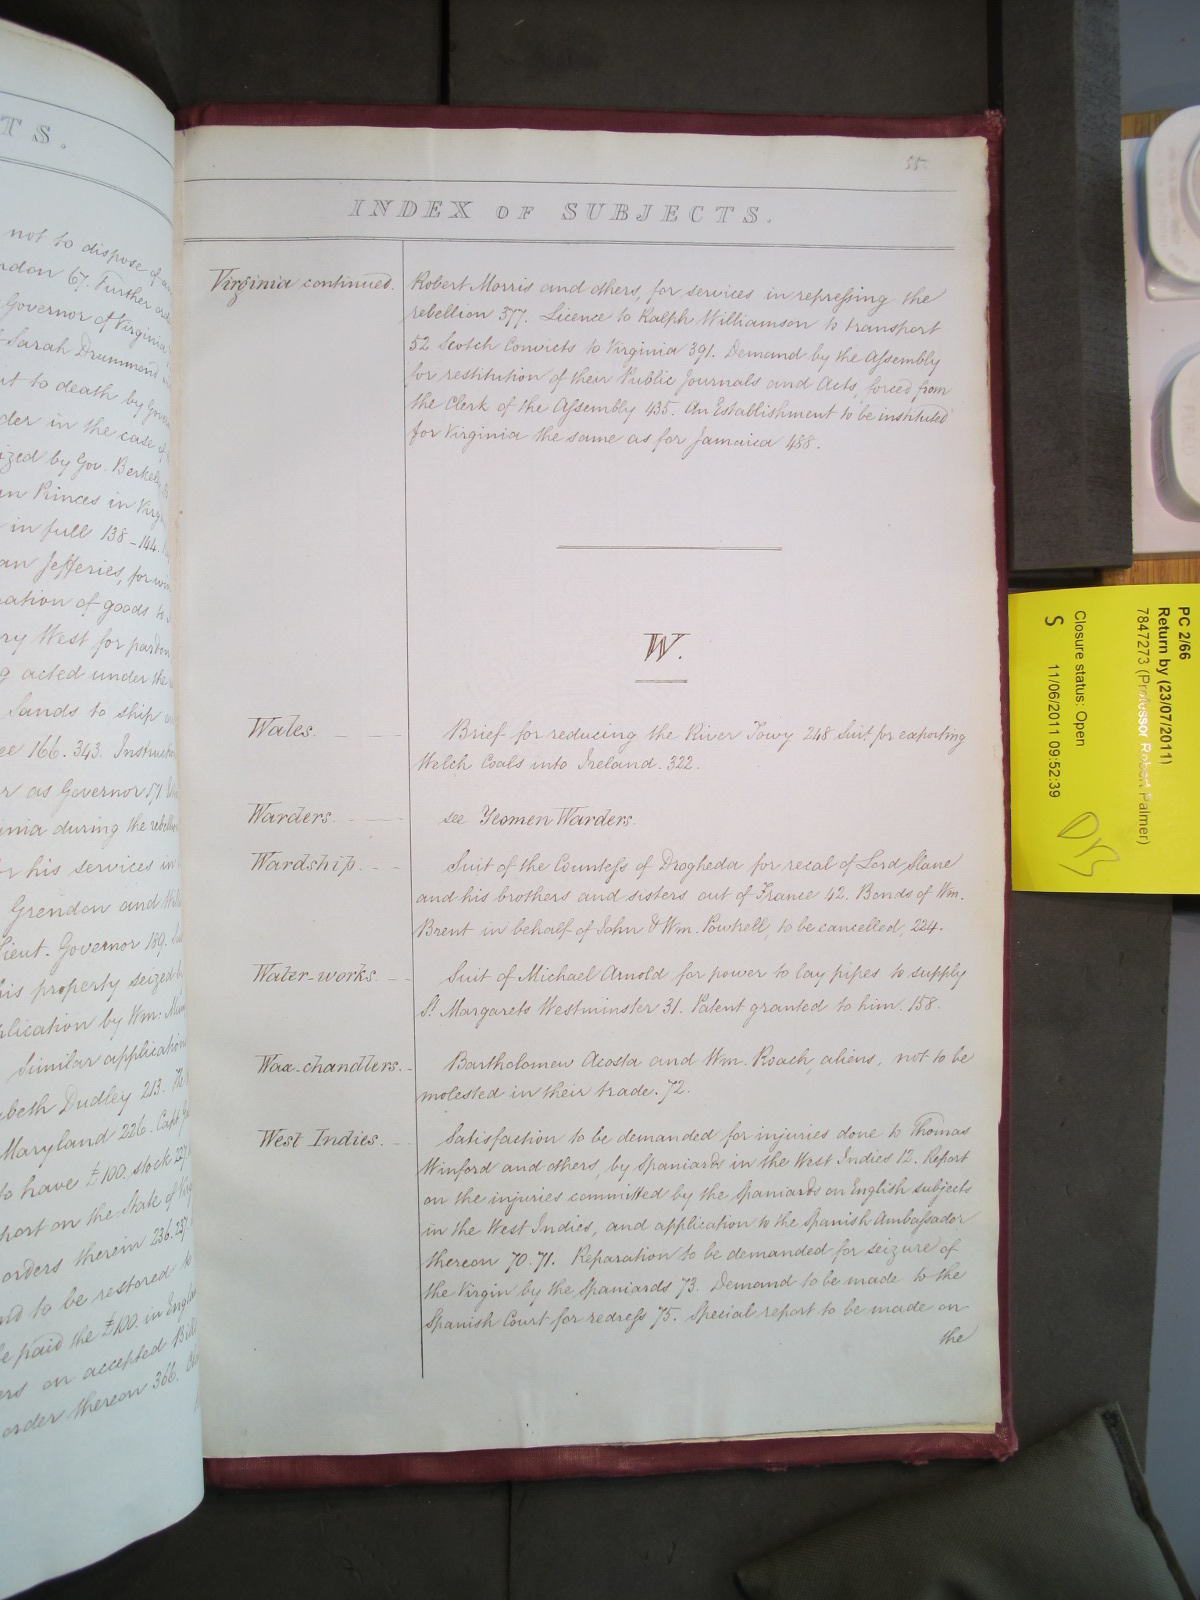 TS.
not to dispose of
ndon 67. Further
Governor of Virginia
Sarah Drummond
ut to death by Gov
der in the case of
ized by Gov. Berkel
an Princes in Virg
in full 138-144.
an Jefferies, for
ation of goods to
ry West for pardon
g acted under the
Sands to ship
ee 166. 343. Instruct
r as Governor 57.
inia during the rebell
r his services in
Grendon and Will
Lieut. Governor 189.
his property seized
plication by Wm.
Similar application
beth Dudley 213.
Maryland 226. Capt
to have £100. stock 227
port on the State of
orders therein 236. 237
nd to be restored to
be paid the £100. in Engla
ers on accepted Bill
order thereon 366.
55.
INDEX OF SUBJECTS.
Virginia continued. Robert Morris and others, for services in repressing the
rebellion 377. Licence to Ralph Williamson to transport
52 Scotch Convicts to Virginia 391. Demand by the Assembly
for restitution of their Public Journals and Acts, forced from
the Clerk of the Assembly 435. An Establishment to be instituted
for Virginia the same as for Jamaica 488.
W.
Wales. Brief for reducing the River Towy 248 Suit for exporting
Welch Coals into Ireland. 322.
Warders. see Yeomen Warders.
Wardship. Suit of the Countess of Drogheda for recal of Lord Slane
and his brothers and sisters out of France 42. Bonds of Wm.
Brent in behalf of John & Wm. Powhell, to be cancelled, 224.
Water-works. Suit of Michael Arnold for power to lay pipes to supply
St. Margarets Westminster 31. Patent granted to him. 158.
Wax-chandlers. Bartholomew Acosta and Wm. Roach, aliens, not to be
molested in their trade. 72.
West Indies. Satisfaction to be demanded for injuries done to Thomas
Winford and others, by Spaniards in the West Indies 12. Report
on the injuries committed by the Spaniards on English subjects
in the West Indies, and application to the Spanish Ambassador
thereon 70. 71. Reparation to be demanded for seizure of
the Virgin by the Spaniards 73. Demand to be made to the
Spanish Court for redress 75. Special report to be made on
the
PC 2/66
Return by (23/07/2011)
7847273 (Professor Robert Palmer)
Closure status: Open
S 11/06/2011 09:52:39